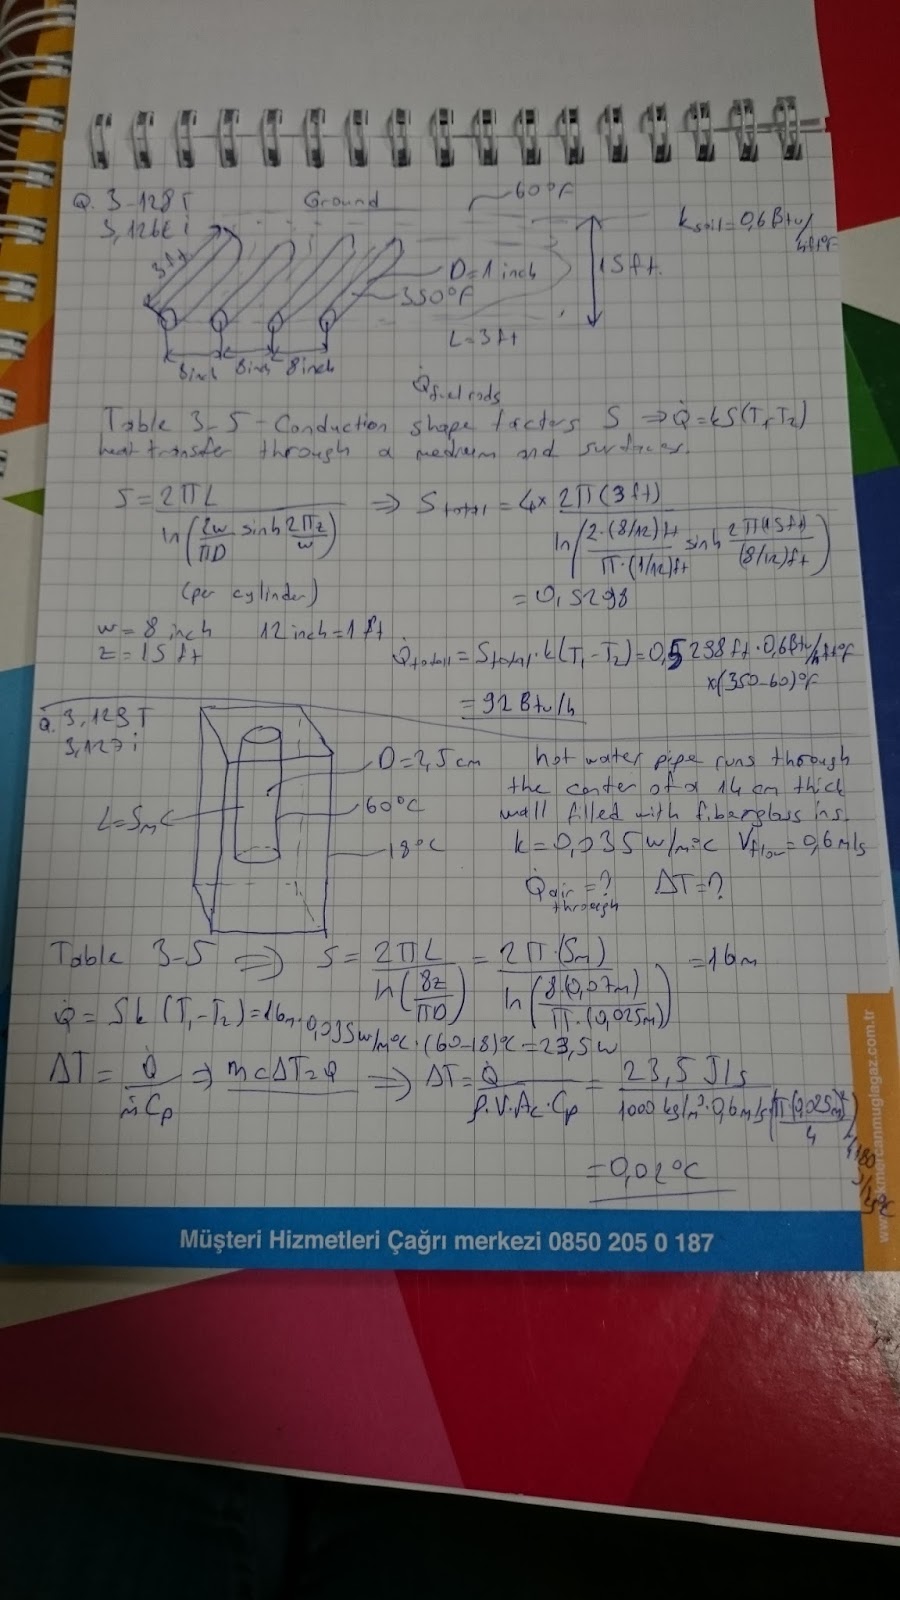 Q. 3-128T
3,126Ei
Ground
60°F
ksoil=0,6Btu/
hft°F
3ft
D=1 inch
350°F
15ft.
L=3ft
8inch 8inch 8inch
Q̇fuel rods
Table 3-5-Conduction shape factors S ⇒ Q̇=kS(T1-T2)
heat transfer through a medium and surfaces.
S=2πL/ln(2w/πD sinh 2πz/w) ⇒ Stotal=4× 2π(3ft)/ln(2·(8/12)ft/π·(1/12)ft sinh 2π(15ft)/(8/12)ft)
(per cylinder)
=0,5298
w=8 inch 12inch=1ft
z=15ft
Q̇total=Stotal·k(T1-T2)=0,5298ft·0,6Btu/hft°F
x(350-60)°F
=92Btu/h
Q. 3,129T
3,127i
D=2,5cm
L=5m
60°C
18°C
hot water pipe runs through
the center of a 14cm thick
wall filled with fiberglass ins.
k=0,035w/m°C Vflow=0,6m/s
Q̇air through=? ΔT=?
Table 3-5 ⇒ S=2πL/ln(8z/πD)=2π·(5m)/ln(8(0,07m)/π·(0,025m))=16m
Q̇=Sk(T1-T2)=16m·0,035w/m°C·(60-18)°C=23,5w
ΔT=Q̇/ṁCp ⇒ mcΔT=Q ⇒ ΔT=Q̇/ρ.V.Ac.Cp=23,5J/s/1000kg/m³·0,6m/s(π·(0,025m)²/4)4180J/kg°C
=0,02°C
Müşteri Hizmetleri Çağrı merkezi 0850 205 0 187